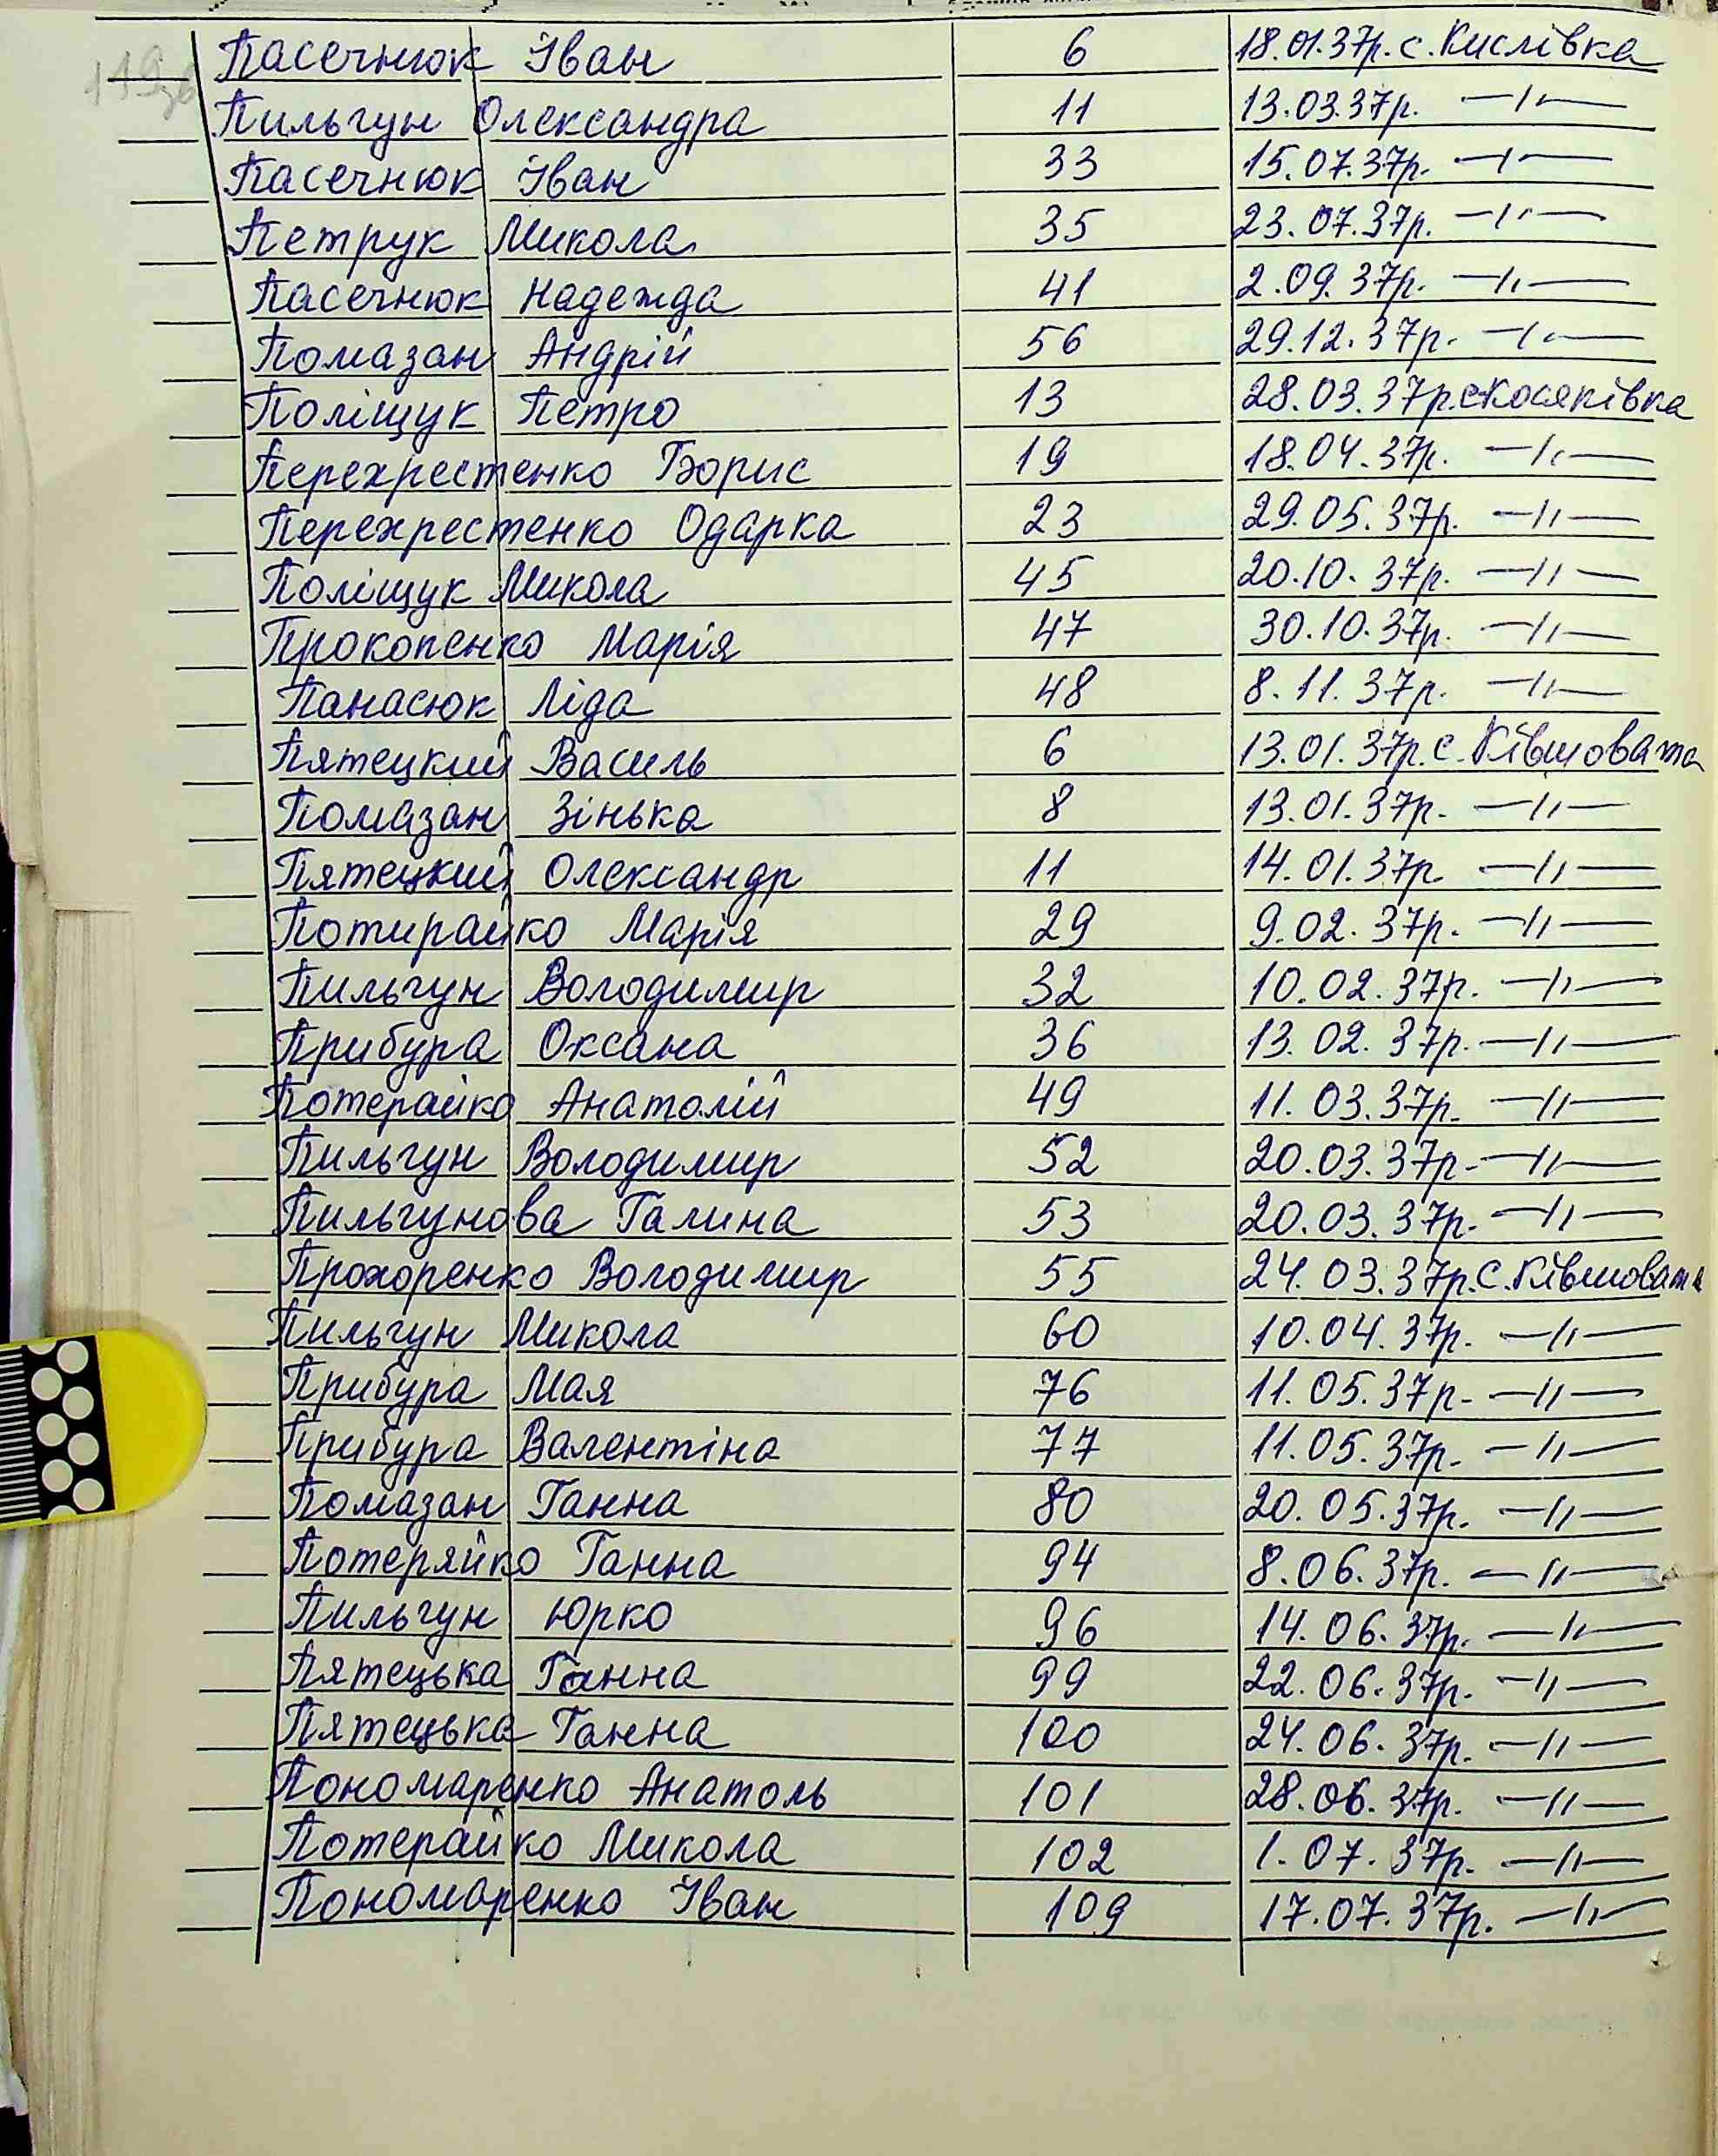 Пасечнюк Іван 6 18.01.37р. с. Кислівка
Пильгун Олександра 11 13.03.37р. —"—
Пасечнюк Іван 33 15.07.37р. —"—
Петрук Микола 35 23.07.37р. —"—
Пасечнюк Надежда 41 2.09.37р. —"—
Помазан Андрій 56 29.12.37р. —"—
Поліщук Петро 13 28.03.37р. с Косяківка
Перехрестенко Борис 19 18.04.37р. —"—
Перехрестенко Одарка 23 29.05.37р. —"—
Поліщук Микола 45 20.10.37р. —"—
Прокопенко Марія 47 30.10.37р. —"—
Панасюк Ліда 48 8.11.37р. —"—
Пятецкий Василь 6 13.01.37р. с. Ківшовата
Помазан Зінька 8 13.01.37р. —"—
Пятецкий Олександр 11 14.01.37р. —"—
Потирайко Марія 29 9.02.37р. —"—
Пильгун Володимир 32 10.02.37р. —"—
Прибура Оксана 36 13.02.37р. —"—
Потерайко Анатолій 49 11.03.37р. —"—
Пильгун Володимир 52 20.03.37р. —"—
Пильгунова Галина 53 20.03.37р. —"—
Прохоренко Володимир 55 24.03.37р. С. Ківшовата
Пильгун Микола 60 10.04.37р. —"—
Прибура Мая 76 11.05.37р. —"—
Прибура Валентіна 77 11.05.37р. —"—
Помазан Ганна 80 20.05.37р. —"—
Потеряйко Ганна 94 8.06.37р. —"—
Пильгун Юрко 96 14.06.37р. —"—
Пятецька Ганна 99 22.06.37р. —"—
Пятецька Ганна 100 24.06.37р. —"—
Пономаренко Анатоль 101 28.06.37р. —"—
Потерайко Микола 102 1.07.37р. —"—
Пономаренко Іван 109 17.07.37р. —"—